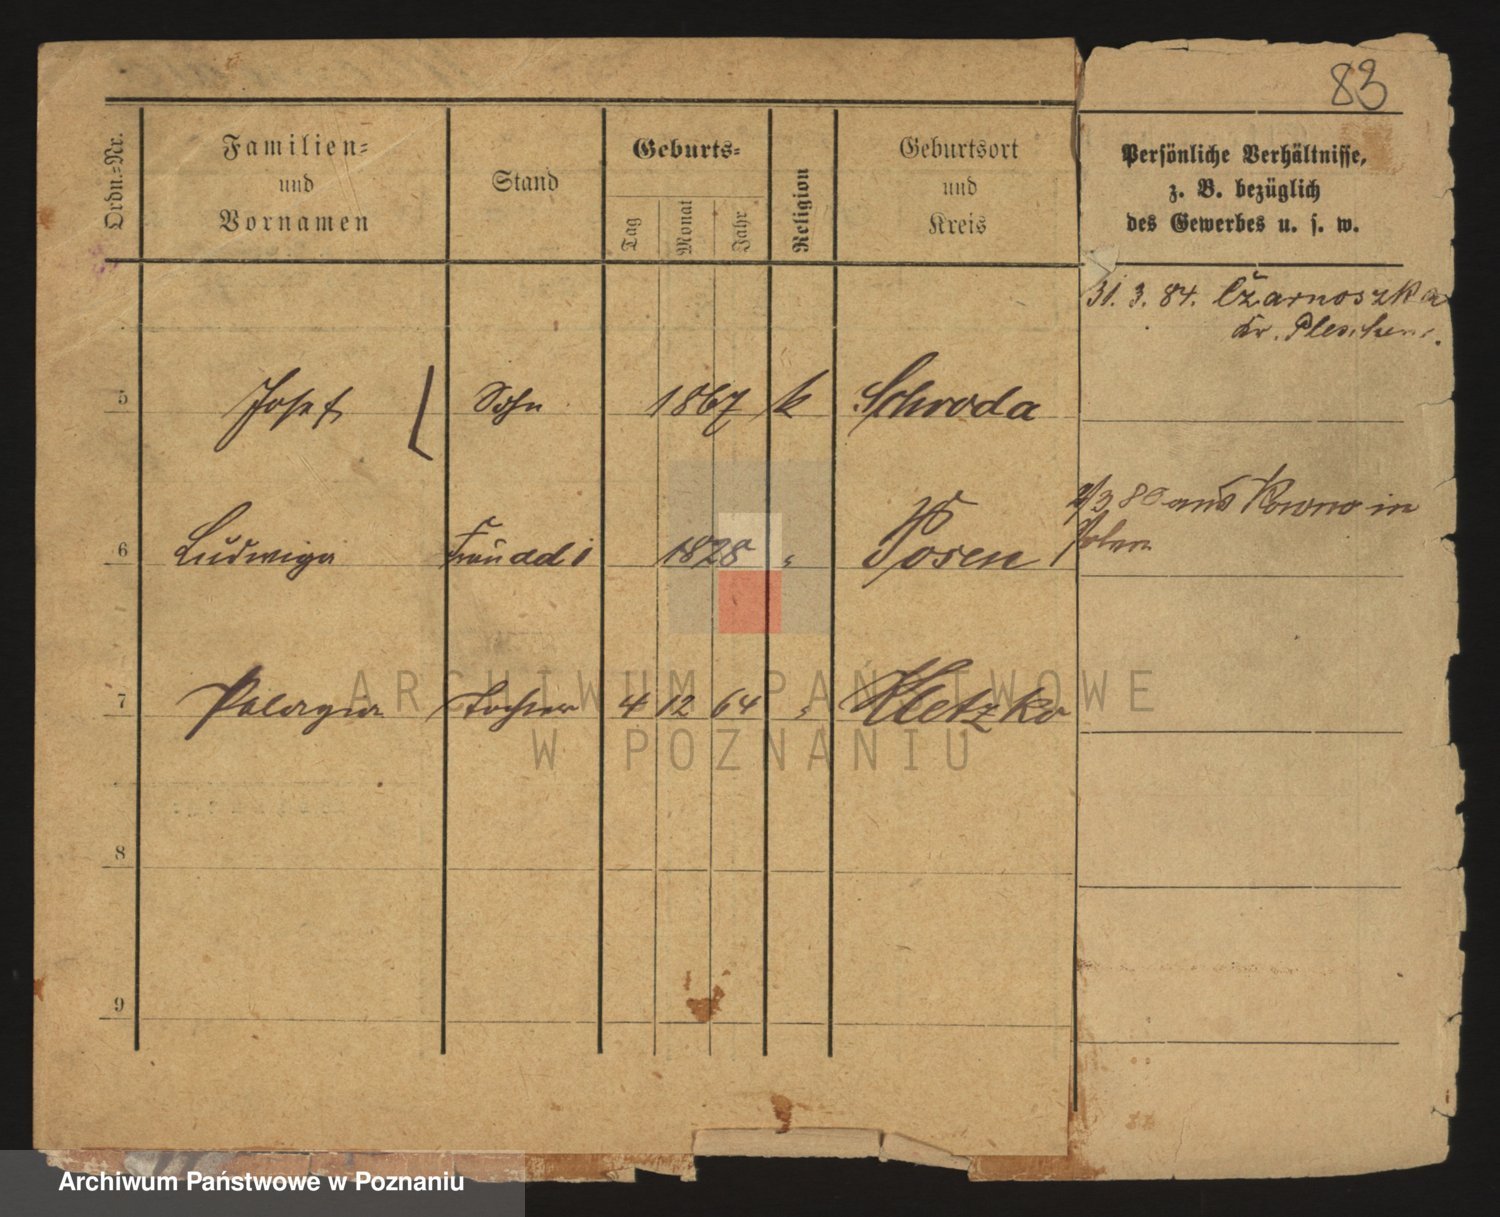 83
Ordn.-Nr.
Familien-
und
Vornamen
Stand
Geburts-
Tag
Monat
Jahr
Religion
Geburtsort
und
Kreis
Persönliche Verhältnisse,
z. B. bezüglich
des Gewerbes u. s. w.
31. 3. 84. Czarnoszka
Kr. Pleschen.
5 Josef Sohn 1867 k Schroda
80 aus Kowno in
Polen
6 Ludwiga 1828 " Posen
7 Pelagia Tochter 4 12 64 " Kletzko
8
9
ARCHIWUM PAŃSTWOWE
W POZNANIU
Archiwum Państwowe w Poznaniu